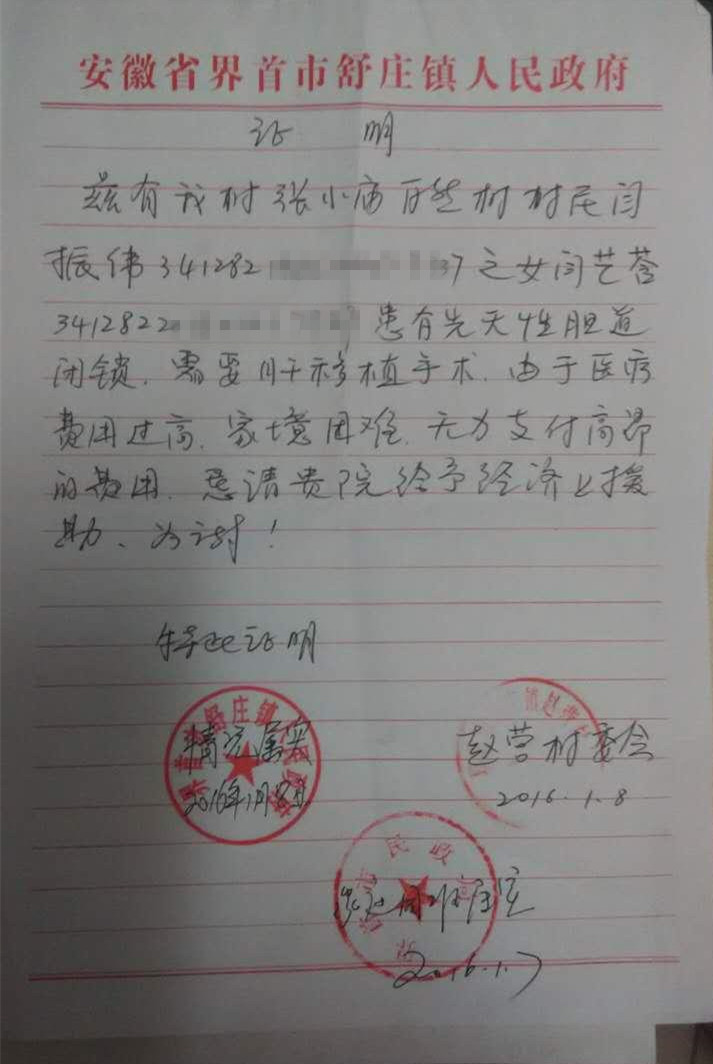 安徽省界首市舒庄镇人民政府
证 明
兹有我村张小庙自然村村民闫
振伟341282 37之女闫艺荟
3412822 患有先天性胆道
闭锁.需要肝移植手术.由于医疗
费用过高.家境困难.无力支付高昂
的费用.恳请贵院给予经济上援
助、为谢!
特此证明
舒庄镇
情况属实
2016年1月8日
镇赵营
赵营村委会
2016.1.8
民政
情况属实
2016.1.7